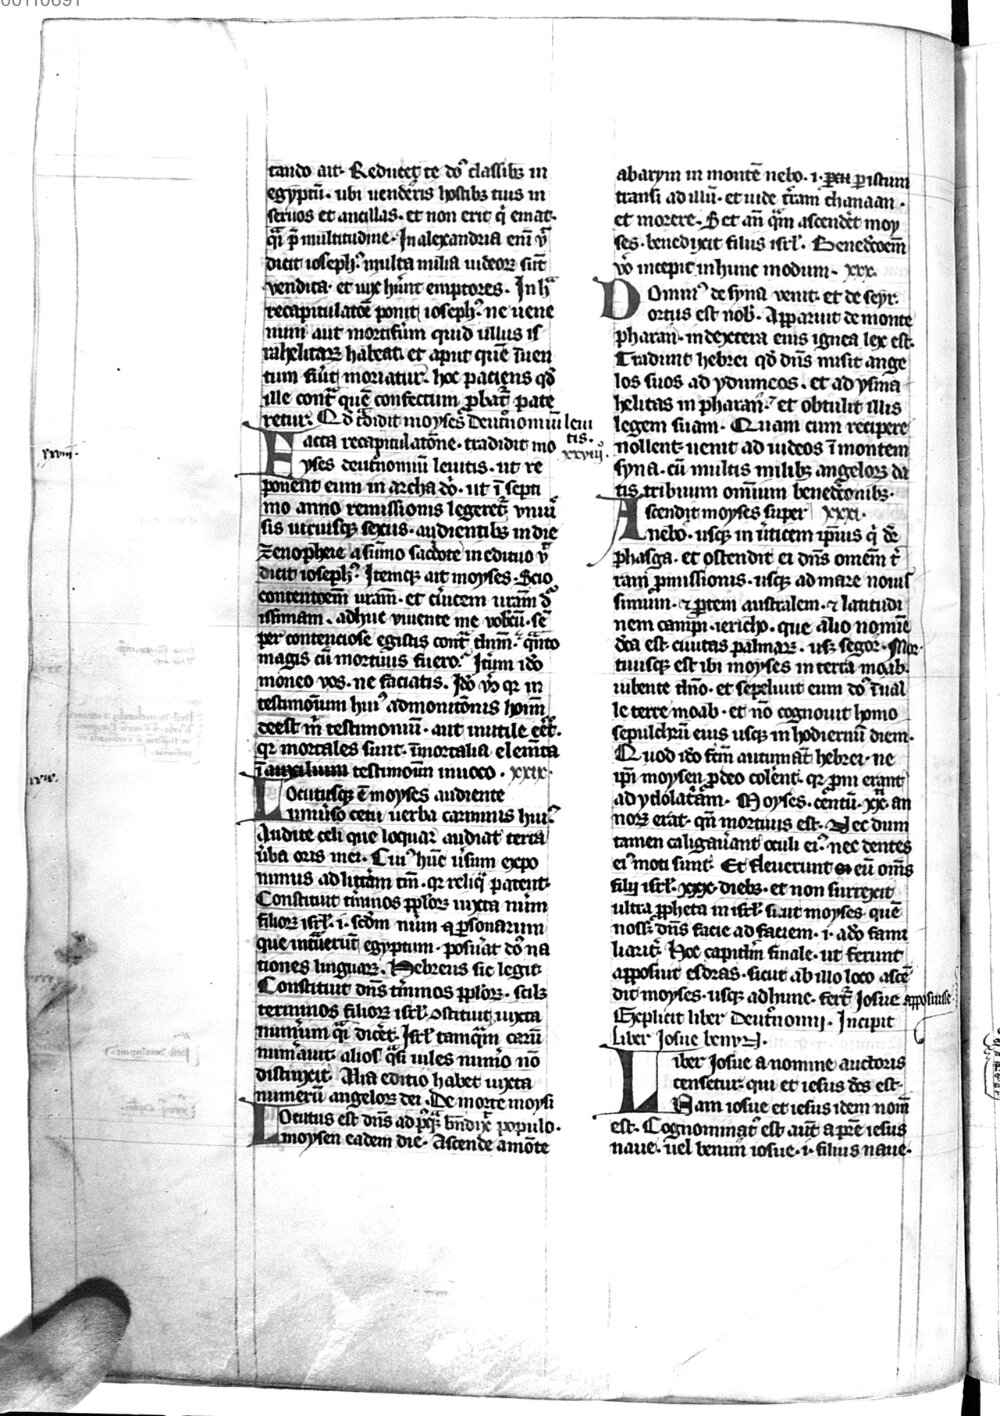 00110691
tando ait. Reducet te dn̄s classibꝫ in
egyptū. ubi uenderis hostibꝫ tuis in
seruos et ancillas. et non erit qͥ emat.
qͣ p̄ multitudine. In alexandria eni ut
dicit ioseph᷒ multa milia uideoꝝ sūt
vendita. et uix hn̄t emptores. In hac
recapitulatōe ponit ioseph᷒ ne uene
num aut mortiferum quid ullus is
rahelitaꝝ habeat. et aput quē īuen
tum fuit moriatur. hoc patiens qd̄
ille contͣ quē confectum ꝓbatͬ pate
retur. Qd̄ tͣdidit moyses deutͦnomiū leui
tis.
xxviij.
Facta recapitulatōne. tradidit mo
yses deutͦnomiū leuitis. ut re
ponent eum in archa dn̄i. ut ī septi
mo anno remissionis legeretͬ vniu
sis utriusqꝫ sexus. audientibꝫ in die
zenophegie a sūmo sacdote in edituo ut
dicit ioseph᷒. Itemqꝫ ait moyses. Scio
contentoem̄ uram̄. et ceruicem uram̄ d
issimam. adhuc viuente me uobcū. se
per contenciose egistis contͣ dn̄m. qͣnto
magis cū mortuus fuero. Itͬm ido
moneo uos. ne faciatis. Ido u᷒o qr in
testimoniū hui᷒ admonitōnis hoim̄
deest m̄ testimoniū. aut inutile eēt.
qr mortales sunt. īmortalia elemēta
ī auxilium testimoniū inuoco. xxix.
Locutusqꝫ ē moyses audiente
uniuso cetu uerba carminis hui᷒.
Audite celi que loquar audiat terra
ūba oris mei. Cui᷒ hūc ūsum expo
nimus ad litͬam tm̄. qr reliqͥ patent.
Constituit tͬminos pploꝝ iuxta num̄
filioꝝ isrl. i. scdm̄ num̄ a psonarum
que intͣuerūt egyptum. posuat dn̄s na
tiones linguaꝝ. Hebreus sic legit
Constituit dn̄s tͬminos pploꝝ. scilꝫ
terminos filioꝝ isrl. ostituit iuxta
numerum qͣi dicet. Isrl tamqͣm carū
num̄auit. alios qͣsi uiles numo nō
distinxit. Alia editio habet iuxta
numerū angeloꝝ dei. De morte moysi
Locutus est dn̄s ad
moysen eadem die. Ascende ī mōte
xxviii.
xxix.
abarym in montē nebo. i.
transi ad illū. et uide tͬram chanaan.
et morere. Set an̄ qͣm ascenderet moy
ses. benedixit filiis isrl. Benedcoem̄
u᷒o incepit in hunc modum. xxx.
Domin᷒ de syna venit. et de seyr.
ortus est nob̄. Apparuit de monte
pharan. in dextera eius ignea lex est.
Tradunt hebrei qd̄ dn̄s misit ange
los suos ad ydumeos. et ad ysma
helitas in pharan. et obtulit illis
legem suam. Quam cum recipere
nollent. uenit ad iudeos ī montem
syna. cū multis milibꝫ angeloꝝ da
tis tribuum omnium benedcōnibꝫ.
Ascendit moyses super xxxi.
nebo. usqꝫ in uticem ipsius qͥ dr̄
phasga. et ostendit ei dn̄s omem̄ t
ram pmissionis. usqꝫ ad mare nouis
simum. ⁊ partem australem. ⁊ latitudi
nem campi iericho. que alio nomie
dc̄a est ciuitas palmaꝝ. usꝫ segor. Mor
tuusqꝫ est ibi moyses in terra moab.
iubente dn̄o. et sepeliuit eum dn̄s ī ual
le terre moab. et nō cognouit homo
sepulchrū eius usqꝫ in hodiernū diem.
Quod ido fcm̄ autumāt hebrei. ne
ipm̄ moysen p deo colerēt. qr pni erant
ad ydolatͣam. Moyses. centū. xx. an
noꝝ erat. qn̄ mortuus est. Nec dum
tamen caligauānt oculi ei᷒. nec dentes
ei᷒ moti sunt. Et fleuerunt eū oms̄
filij isrl. xxx. diebꝫ. et non surrexit
ultra ppheta in isrl sicut moyses quē
nosset dn̄s facie ad faciem. i. ado fami
liarit. Hoc capitlm̄ finale. ut ferunt
apposuit esdras. sicut ab illo loco ascē
dit moyses. usqꝫ ad hunc. fertͬ Iosue apposuisse.
Explicit liber deutͦnomij. Incipit
liber Iosue bennuᷓ.
Liber Iosue a nomine auctoris
censetur. qui et iesus dc̄s est.
Nam iosue et iesus idem nom̄
est. Cognominatͬ est aūt a patre iesus
naue. uel bennun iosue. i. filius naue.